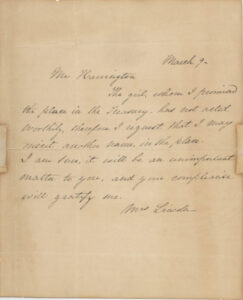 March 9-
Mr Harrington
The girl, whom I promised
the place in the Treasury, has not acted
worthily, therefore I request that I may
insert another name, in the place.
I am sure, it will be an unimportant
matter to you, and your compliance
will gratify me.
Mrs Lincoln